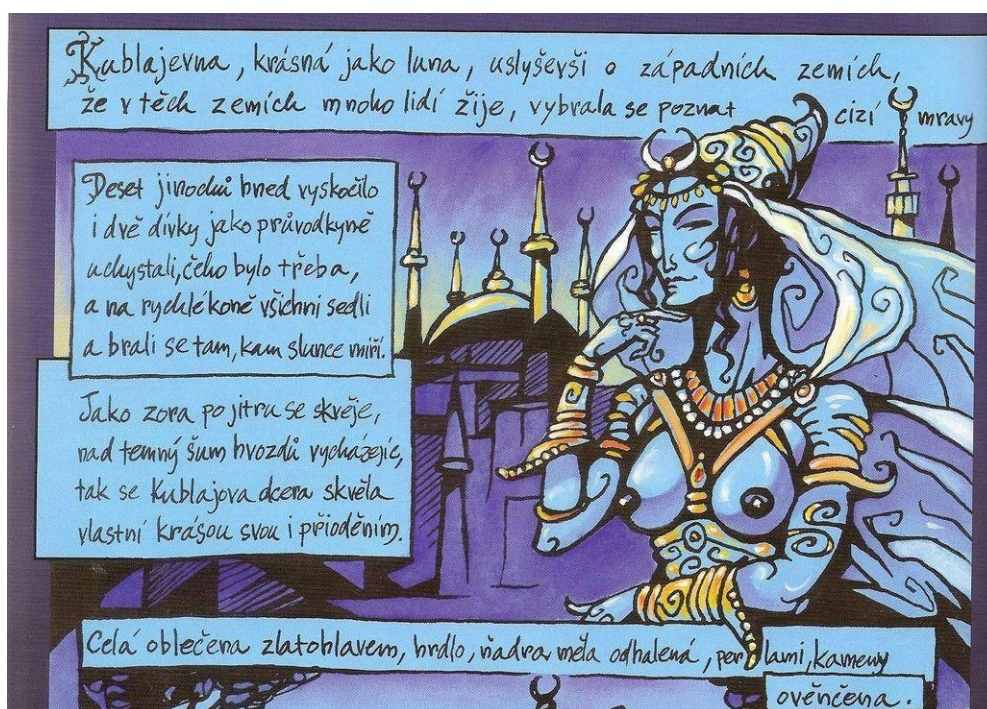 Kublajevna, krásná jako luna, uslyševši o západních zemích,
že v těch zemích mnoho lidí žije, vybrala se poznat cizí mravy
Deset jinochů hned vyskočilo
i dvě dívky jako průvodkyně
uchystali, čeho bylo třeba,
a na rychlé koně všichni sedli
a brali se tam, kam slunce míří.
Jako zora po jitru se skvěje,
nad temný šum hvozdů vycházejíc,
tak se Kublajova dcera skvěla
vlastní krásou svou i přioděním.
Celá oblečena zlatohlavem, hrdlo, ňadra měla odhalená, perlami, kameny
ověnčena.